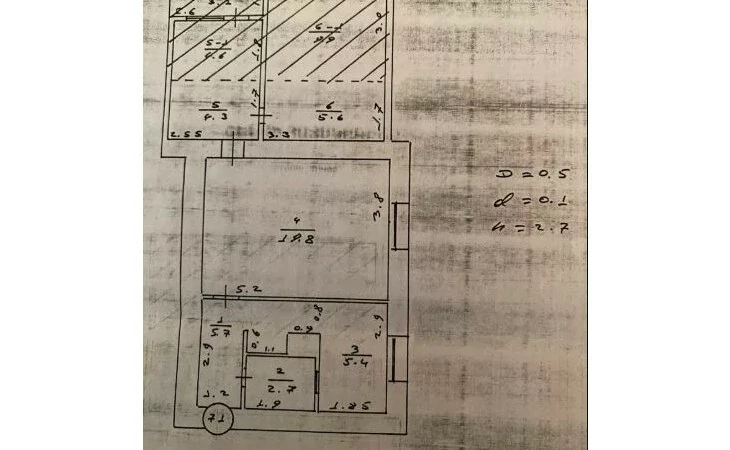 2.6
5-1
4.6
1.8
6-1
9.9
3.0
5
4.3
1.7
6
5.6
1.7
2.55
3.3
D = 0.5
d = 0.1
h = 2.7
4
19.8
3.8
5.2
1
5.7
0.6
0.9
0.8
2.9
2.9
1.1
3
5.4
2
2.7
1.2
1.9
1.85
71